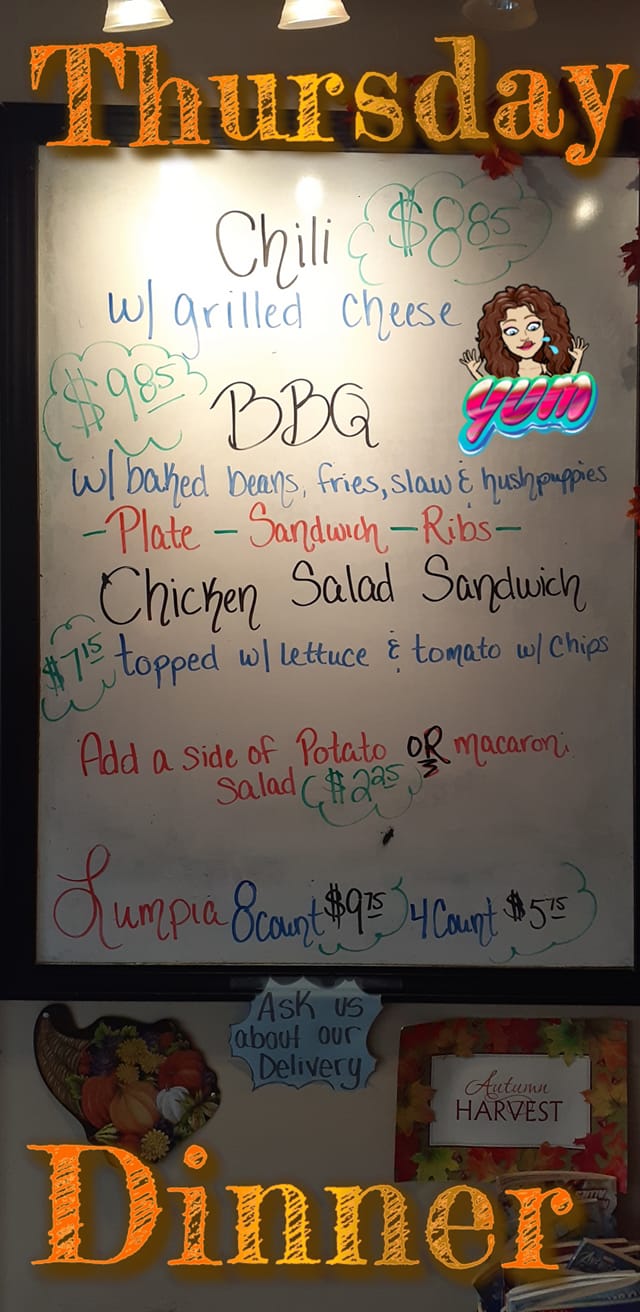 Thursday
Chili $8.85
w/ grilled cheese
YUM
$9.85
BBQ
w/ baked beans, fries, slaw & hushpuppies
- Plate - Sandwich - Ribs -
Chicken Salad Sandwich
$7.15 topped w/ lettuce & tomato w/ chips
Add a side of Potato OR macaroni
salad ($2.25)
Lumpia 8 count $9.75 4 Count $5.75
Ask us
about our
Delivery
Autumn
HARVEST
Dinner